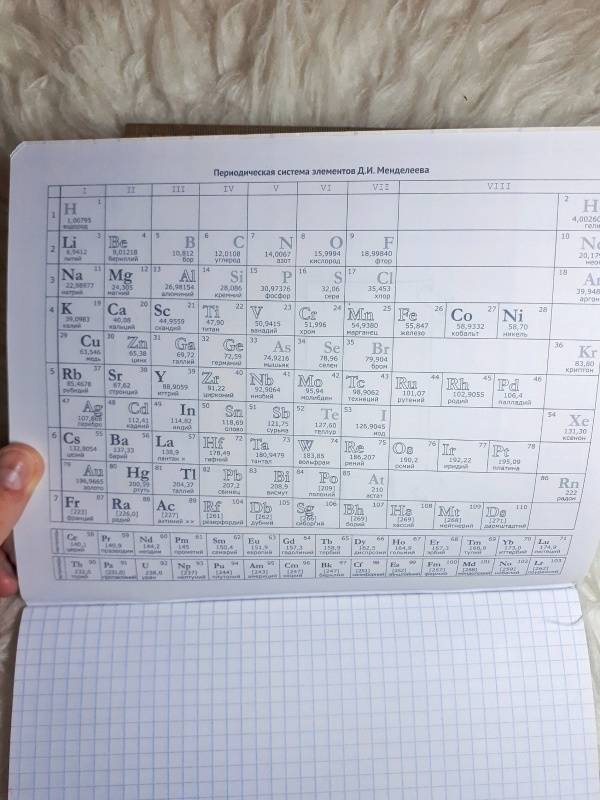 Периодическая система элементов Д.И. Менделеева
I II III IV V VI VII VIII
1 H 1 1,00795 водород 2 H 4,00260 гели
2 Li 3 6,9412 литий Be 4 9,01218 бериллий 5 B 10,812 бор 6 C 12,0108 углерод 7 N 14,0067 азот 8 O 15,9994 кислород 9 F 18,99840 фтор 10 N 20,179 нео
3 Na 11 22,98977 натрий Mg 12 24,305 магний 13 Al 26,98154 алюминий 14 Si 28,086 кремний 15 P 30,97376 фосфор 16 S 32,06 сера 17 Cl 35,453 хлор 18 A 39,948 аргон
4 K 19 39,0983 калий Ca 20 40,08 кальций Sc 21 44,9559 скандий Ti 22 47,90 титан V 23 50,9415 ванадий Cr 24 51,996 хром Mn 25 54,9380 марганец Fe 26 55,847 железо Co 27 58,9332 кобальт Ni 28 58,70 никель
29 Cu 63,546 медь 30 Zn 65,38 цинк 31 Ga 69,72 галлий 32 Ge 72,59 германий 33 As 74,9216 мышьяк 34 Se 78,96 селен 35 Br 79,904 бром 36 Kr 83,80 криптон
5 Rb 37 85,4678 рубидий Sr 38 87,62 стронций Y 39 88,9059 иттрий Zr 40 91,22 цирконий Nb 41 92,9064 ниобий Mo 42 95,94 молибден Tc 43 98,9062 технеций Ru 44 101,07 рутений Rh 45 102,9055 родий Pd 46 106,4 палладий
47 Ag 107,868 серебро 48 Cd 112,41 кадмий 49 In 114,82 индий 50 Sn 118,69 олово 51 Sb 121,75 сурьма 52 Te 127,60 теллур 53 I 126,9045 иод 54 Xe 131,30 ксенон
6 Cs 55 132,9054 цезий Ba 56 137,33 барий La 57 138,9 лантан × Hf 72 178,49 гафний Ta 73 180,9479 тантал W 74 183,85 вольфрам Re 75 186,207 рений Os 76 190,2 осмий Ir 77 192,22 иридий Pt 78 195,09 платина
79 Au 196,9665 золото 80 Hg 200,59 ртуть 81 Tl 204,37 таллий 82 Pb 207,2 свинец 83 Bi 208,9 висмут 84 Po [209] полоний 85 At 210 астат 86 Rn 222 радон
7 Fr 87 [223] франций Ra 88 [226,0] радий Ac 89 [227] актиний ×× Rf 104 [261] резерфордий Db 105 [262] дубний Sg 106 [266] сиборгий Bh 107 [269] борий Hs 108 [269] хассий Mt 109 [268] мейтнерий Ds 110 [271] дармштадтий
Ce 58 140,1 церий Pr 59 140,9 празеодим Nd 60 144,2 неодим Pm 61 145 прометий Sm 62 150,4 самарий Eu 63 151,9 европий Gd 64 157,3 гадолиний Tb 65 158,9 тербий Dy 66 162,5 диспрозий Ho 67 164,9 гольмий Er 68 167,3 эрбий Tm 69 168,9 тулий Yb 70 173,0 иттербий Lu 71 174,9 лютеций
Th 90 232,0 торий Pa 91 [231,0] протактиний U 92 238,0 уран Np 93 [237] нептуний Pu 94 [244] плутоний Am 95 [243] америций Cm 96 [247] кюрий Bk 97 [247] берклий Cf 98 [251] калифорний Es 99 [252] эйнштейний Fm 100 [257] фермий Md 101 [258] No 102 [259] нобелий Lr 103 [262]